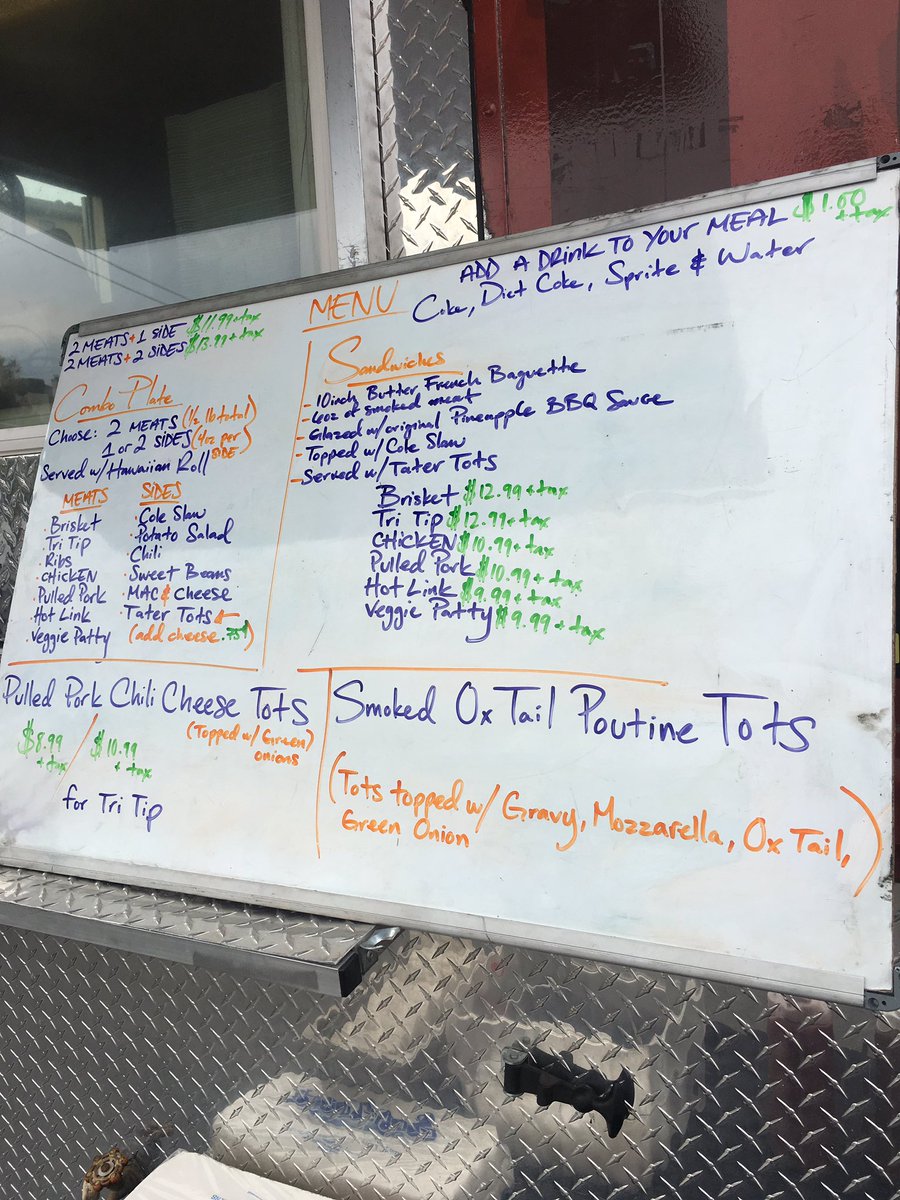 ADD A DRINK TO YOUR MEAL $1.00 + tax
Coke, Diet Coke, Sprite & Water
MENU
2 MEATS + 1 SIDE $11.99 + tax
2 MEATS + 2 SIDES $13.99 + tax
Combo Plate
Choose: 2 MEATS (1/2 lb total)
1 or 2 SIDES (4oz per SIDE)
Served w/ Hawaiian Roll
MEATS
· Brisket
· Tri Tip
· Ribs
· CHICKEN
· Pulled Pork
· Hot Link
· Veggie Patty
SIDES
· Cole Slaw
· Potato Salad
· Chili
· Sweet Beans
· MAC & Cheese
· Tater Tots
(add cheese .75¢)
Sandwiches
- 10inch Butter French Baguette
- 6oz of smoked meat
- Glazed w/ original Pineapple BBQ Sauce
- Topped w/ Cole Slaw
- Served w/ Tater Tots
Brisket $12.99 + tax
Tri Tip $12.99 + tax
CHICKEN $10.99 + tax
Pulled Pork $10.99 + tax
Hot Link $9.99 + tax
Veggie Patty $9.99 + tax
Pulled Pork Chili Cheese Tots
(Topped w/ Green onions)
$8.99 + tax / $10.99 + tax
for Tri Tip
Smoked Ox Tail Poutine Tots
(Tots topped w/ Gravy, Mozzarella, Ox Tail,
Green Onion)